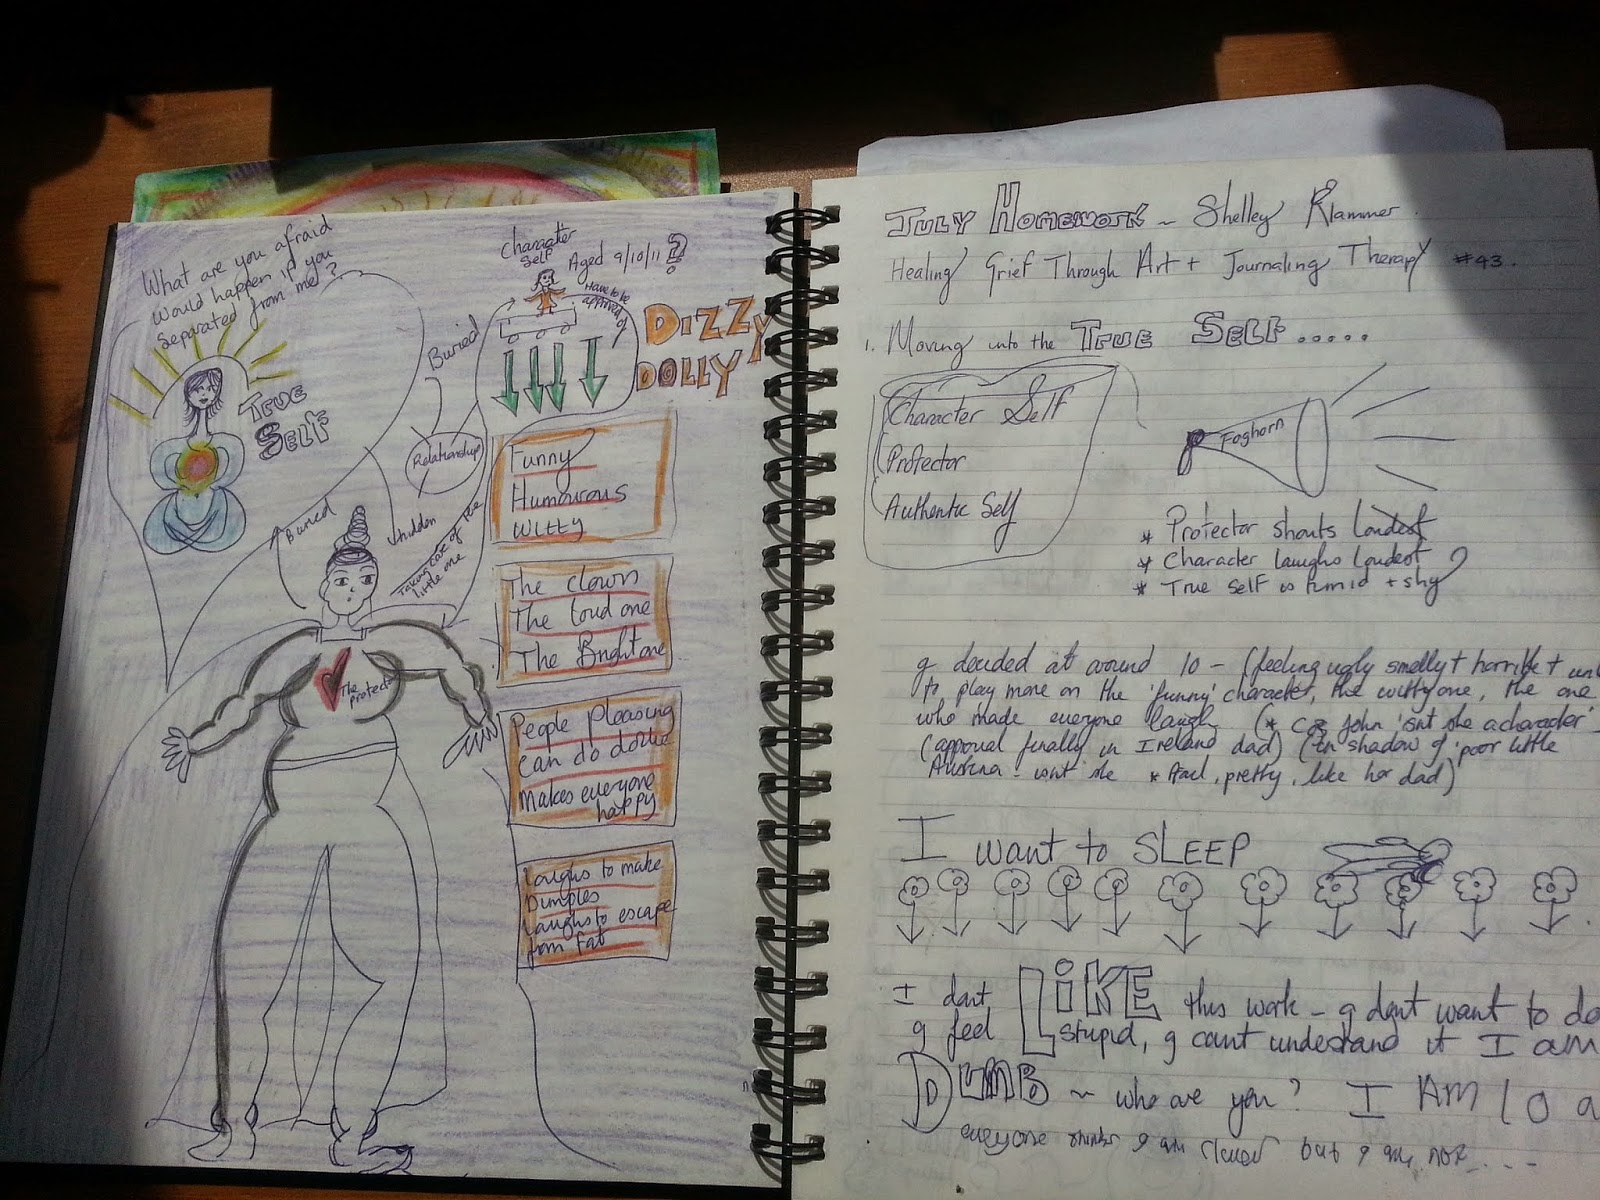 What are you afraid
would happen if you
separated from me?
TRUE
SELF
Character
Self
Aged 9/10/11?
Have to be
approved of
DIZZY
DOLLY
Buried
Relationships
Buried
hidden
Taking care of the
little one
The protector
Funny
Humourous
Witty
The clown
The loud one
The Bright one
People pleasing
can do
Makes everyone
happy
Laughs to make
Dimples
Laughs to escape
from fat
JULY HOMEWORK ~ Shelley Klammer
Healing Grief Through Art + Journaling Therapy #43.
1. Moving into the TRUE SELF.....
Character Self
Protector
Authentic Self
Foghorn
* Protector shouts Loudest
* Character laughs Loudest
* True self is timid + shy
I decided at around 10 - (feeling ugly smelly + horrible +
to play more on the 'funny' character, the witty one, the one
who made everyone laugh (* John 'isnt she a character'
(approval finally in Ireland dad) (In shadow of 'poor little
isnt she * pretty, like her dad)
I want to SLEEP
I dont LIKE this work - I dont want to do
I feel stupid, I cant understand it I am
DUMB ~ who are you? I AM 10 a
everyone thinks I am clever but I am not....